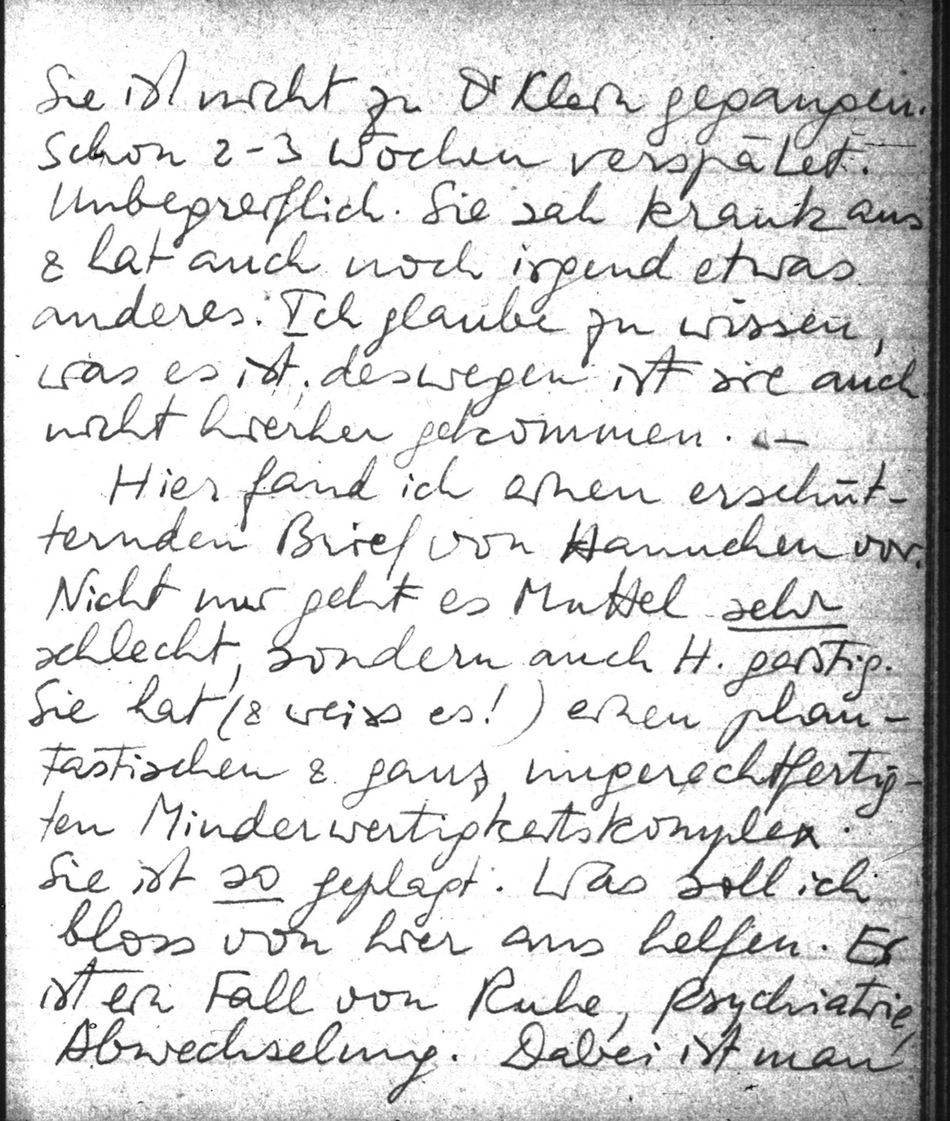 Sie ist nicht zu Dr Klein gegangen.
Schon 2-3 Wochen verspätet.
Unbegreiflich. Sie sah krank aus
& hat auch noch irgend etwas
anderes. Ich glaube zu wissen,
was es ist, deswegen ist sie auch
nicht hierher gekommen. –
Hier fand ich einen erschüt-
ternden Brief von Hannchen vor.
Nicht nur geht es Muttel sehr
schlecht, sondern auch H. garstig.
Sie hat (& weiss es!) einen phan-
tastischen & ganz ungerechtfertig-
ten Minderwertigkeitskomplex.
Sie ist so geplagt. Was soll ich
bloss von hier aus helfen. Es
ist ein Fall von Ruhe, Psychiatrie,
Abwechselung. Dabei ist man